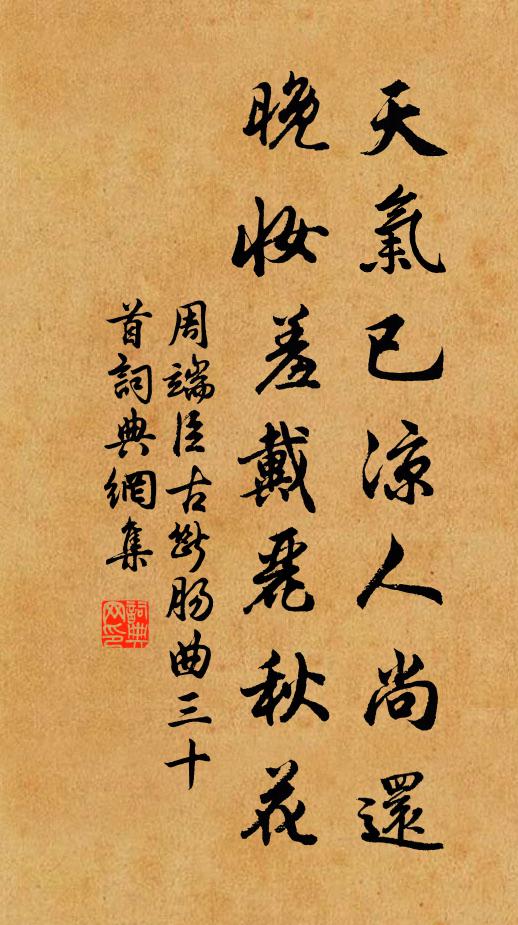 天氣已涼人尚還
晚妝羞戴麗秋花
周端臣古斷腸曲三十
首詞典網集
詞典
網印